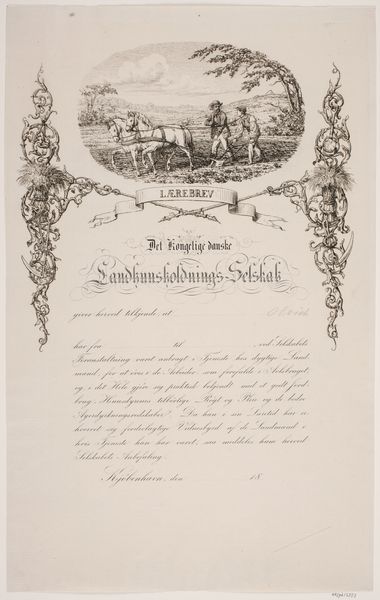 LÆREBREV
Det Kongelige danske
Landhuusholdnings-Selskab
giver herved tilkjende, at
har fra til ved Selskabets
Foranstaltning været anbragt i Tjeneste hos dygtige Land-
mænd, for at øves i de Arbeider, som forefalde i Avlsbruget
og i det Hele gjøre sig praktisk bekjendt med et godt Jord-
brug, Huusdyrenes tilbørlige Røgt og Pleie og de bedre
Agerdyrkningsredskaber. Da han i sin Læretid har er-
hvervet sig fordeelagtige Vidnesbyrd af de Landmænd i
hvis Tjeneste han har været, saa meddeles ham herved
Selskabets Anbefaling.
Kjöbenhavn, den 18